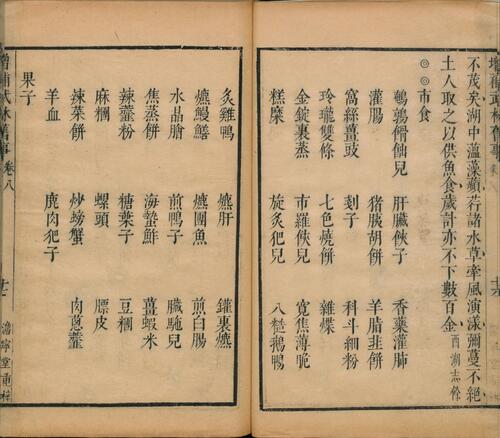 不茂矣湖中溫藻蘋荇諸水草牽風演漾彌蔓不絕
土人取之以供魚食歲計亦不下數百金西湖志餘
◎◎市食
鵪鶉餶飿兒 肝臟鋏子 香藥灌肺
灌腸 猪胰胡餅 羊脂韭餅
窩絲薑豉 刬子 科斗細粉
玲瓏雙條 七色燒餅 雜煠
金錠裹蒸 市羅俠兒 寬焦薄脆
糕糜 旋炙犯兒 八 鵝鴨
炙雞鴨 爊肝 鑵裏爊
爊鰻鱔 爊團魚 煎白腸
水晶膾 煎鴨子 臟駞兒
焦蒸餅 海蟄鮓 薑蝦米
辣虀粉 糖葉子 豆糰
麻糰 螺頭 膘皮
辣菜餅 炒螃蟹 肉蔥虀
羊血 鹿肉犯子
果子
增補武林舊事 卷八 十二 澹寧堂重梓